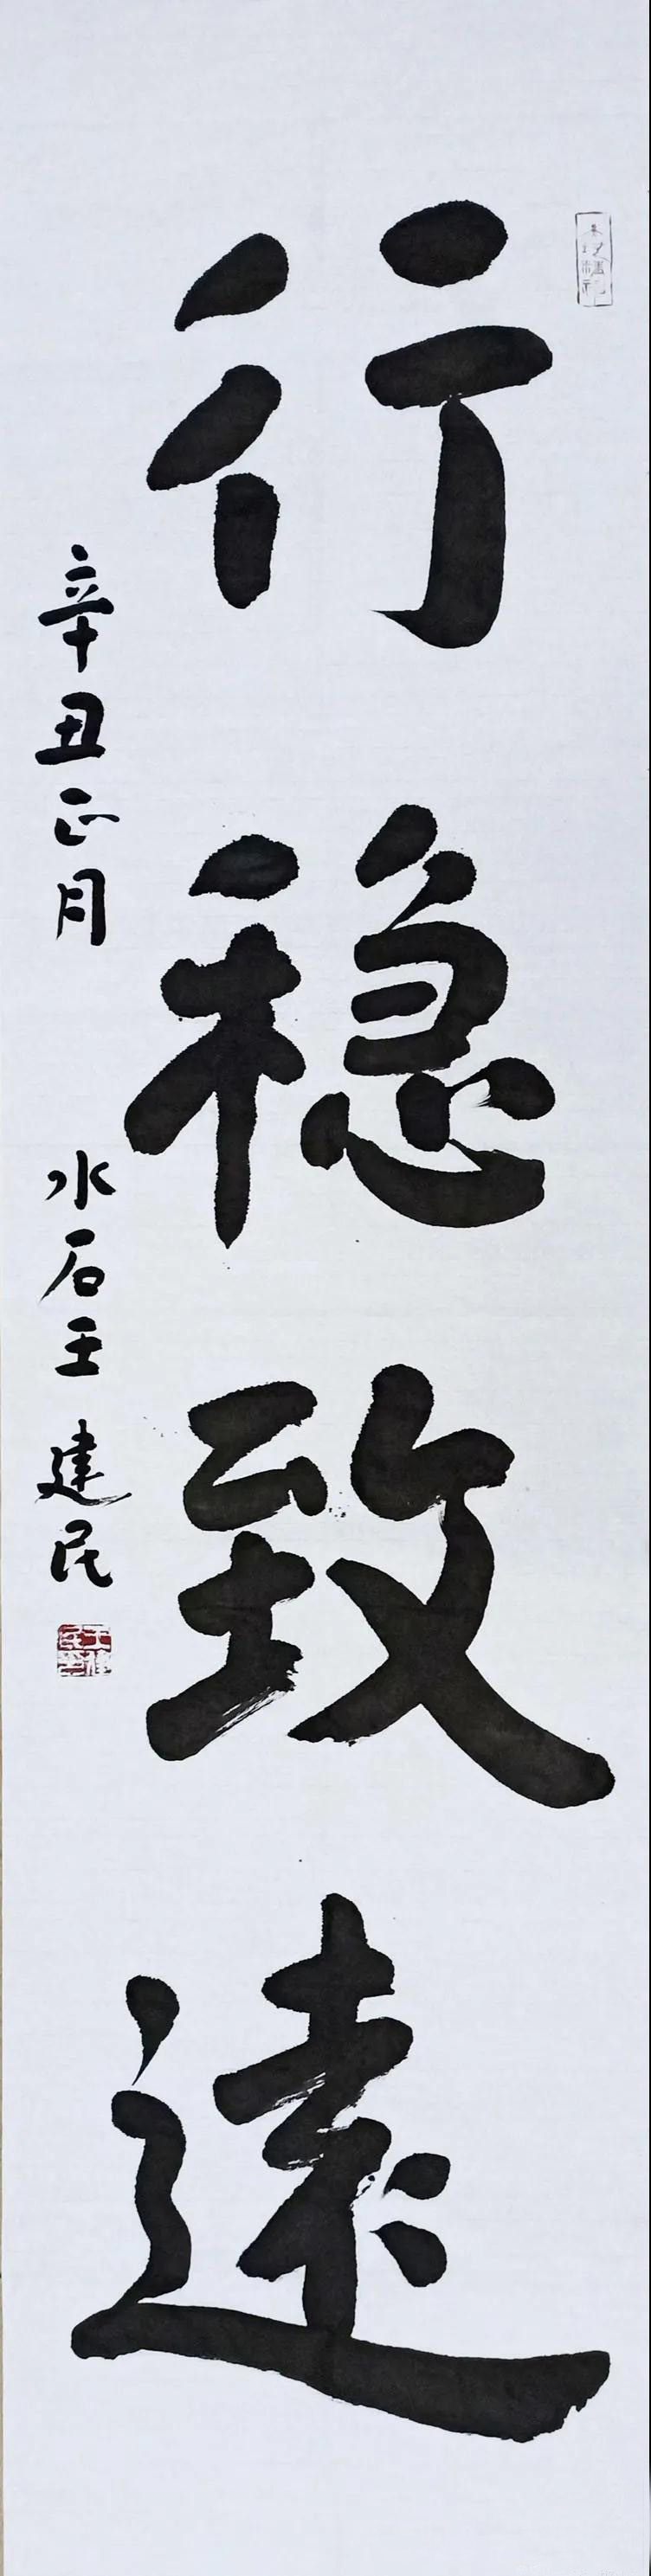 行稳致遠
辛丑正月 水石王建民